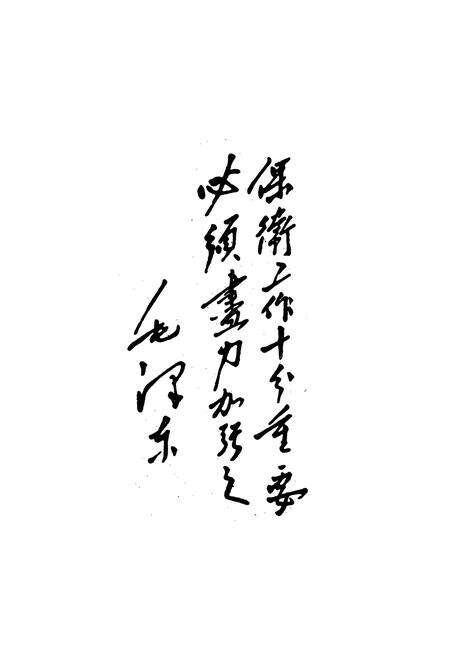 保衛工作十分重要
必須盡力加強之
毛澤东